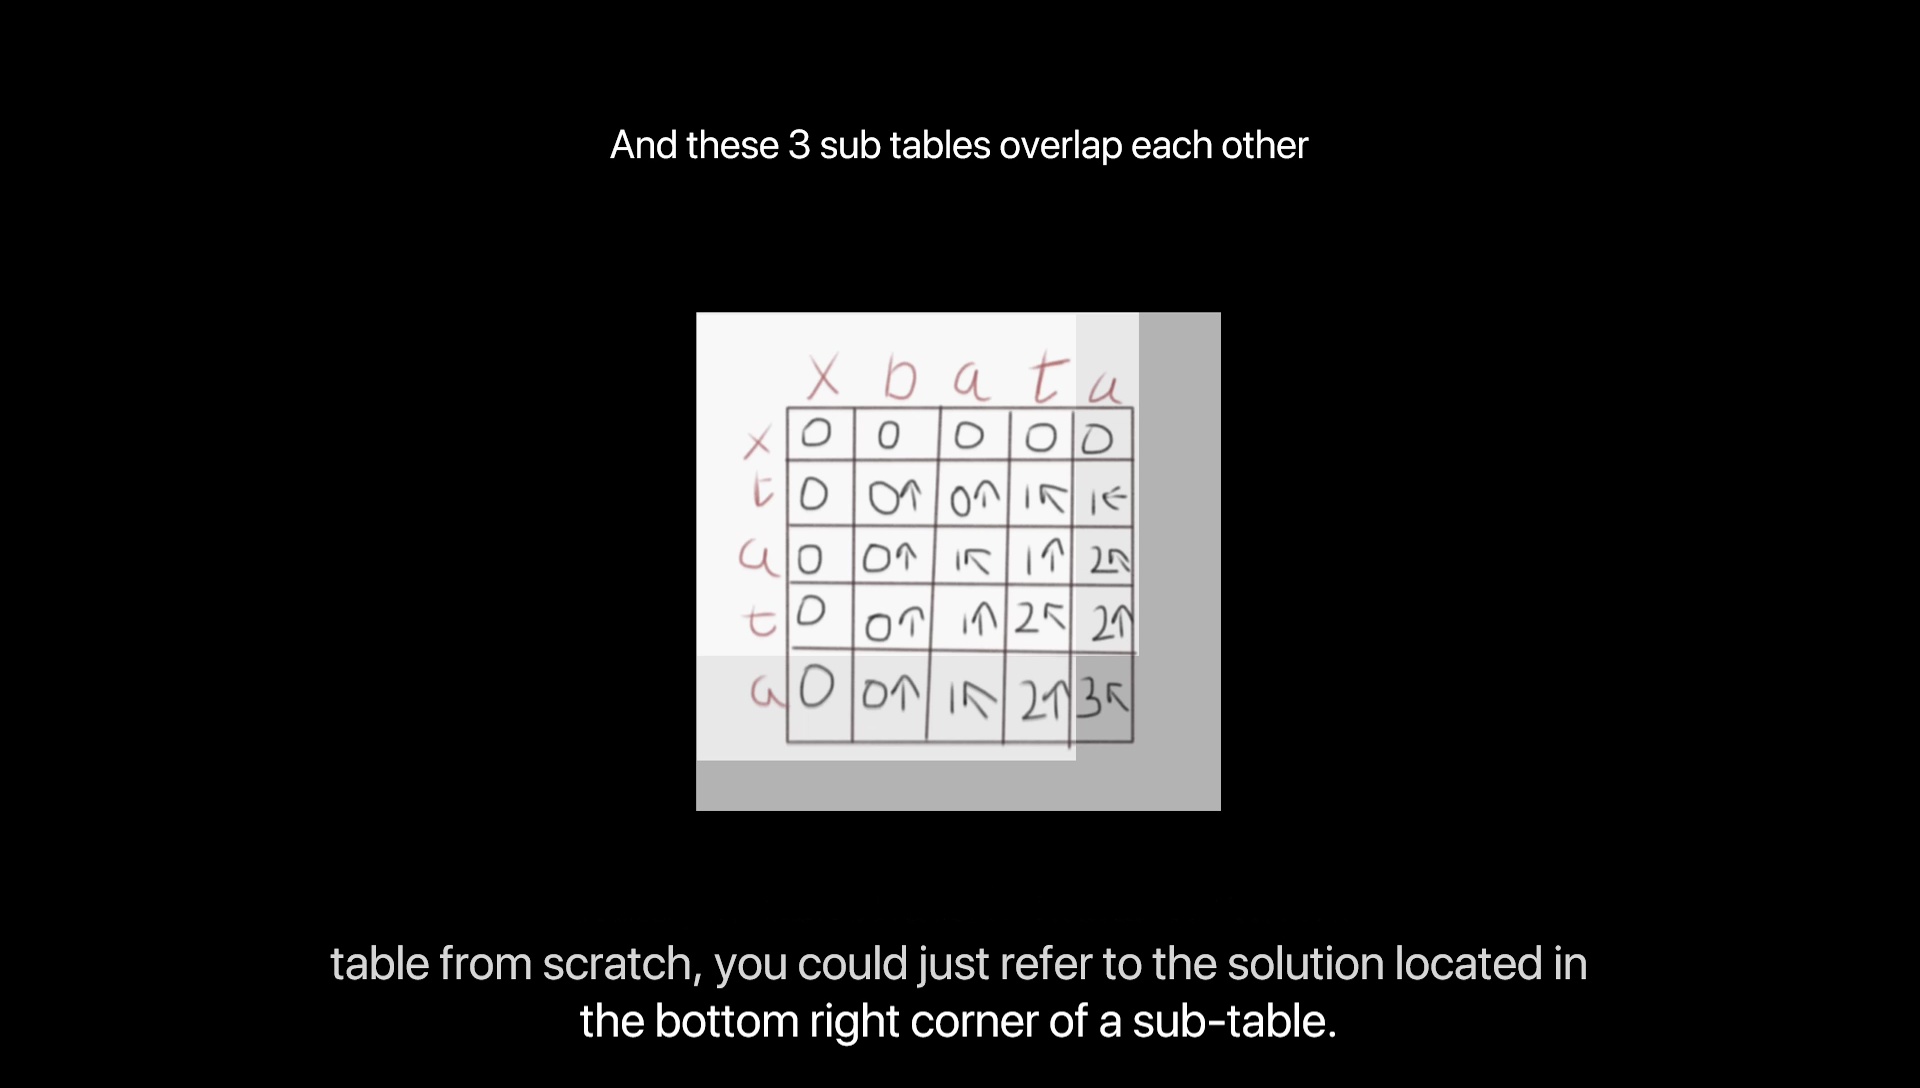 And these 3 sub tables overlap each other
x b a t a
x 0 0 0 0 0
t 0 0↑ 0↑ 1↖ 1←
a 0 0↑ 1↖ 1↑ 2↖
t 0 0↑ 1↑ 2↖ 2↑
a 0 0↑ 1↖ 2↑ 3↖
table from scratch, you could just refer to the solution located in
the bottom right corner of a sub-table.